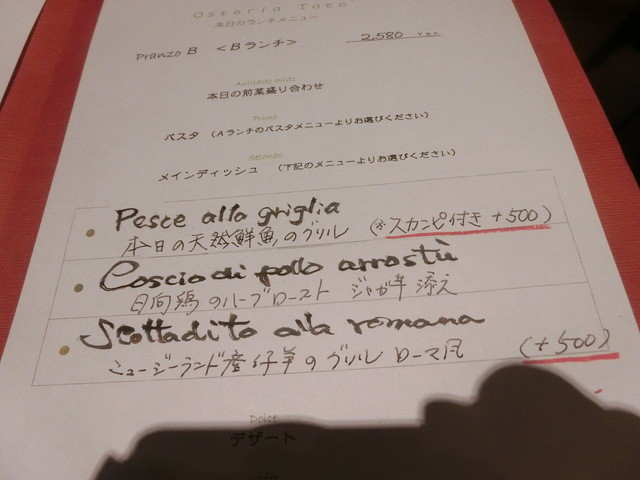 Osteria Toto
本日のランチメニュー
Pranzo B <Bランチ> 2,580 yen
Antipasto misto
本日の前菜盛り合わせ
Primi
パスタ (Aランチのパスタメニューよりお選びください)
Secondo
メインディッシュ (下記のメニューよりお選びください)
Pesce alla griglia
本日の天然鮮魚のグリル (※スカンピ付き +500)
Coscio di pollo arrostù
日向鶏のハーブロースト ジャガ芋添え
Scottadito alla romana
ニュージーランド産仔羊のグリル ローマ風 (+500)
Dolce
デザート